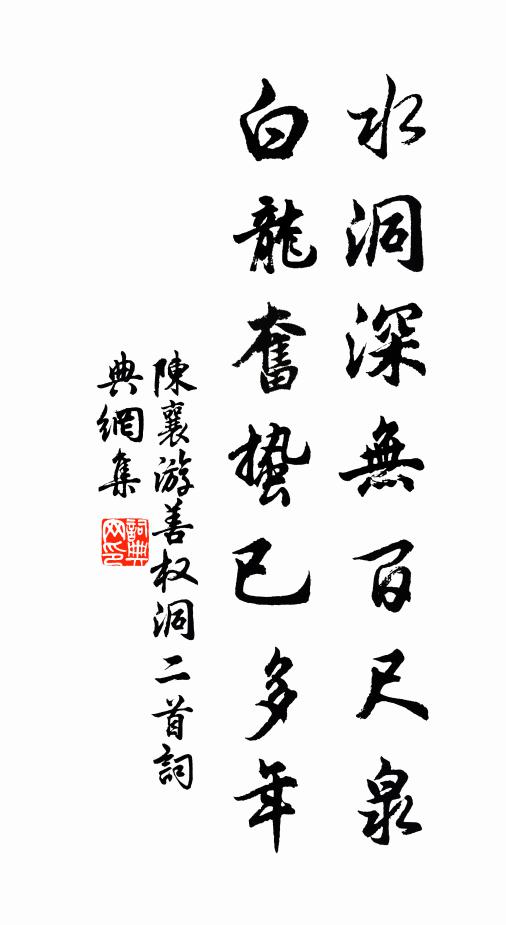 水洞深無百尺泉
白龍奮蟄已多年
陳襄游善权洞二首詞
典網集
詞典网印